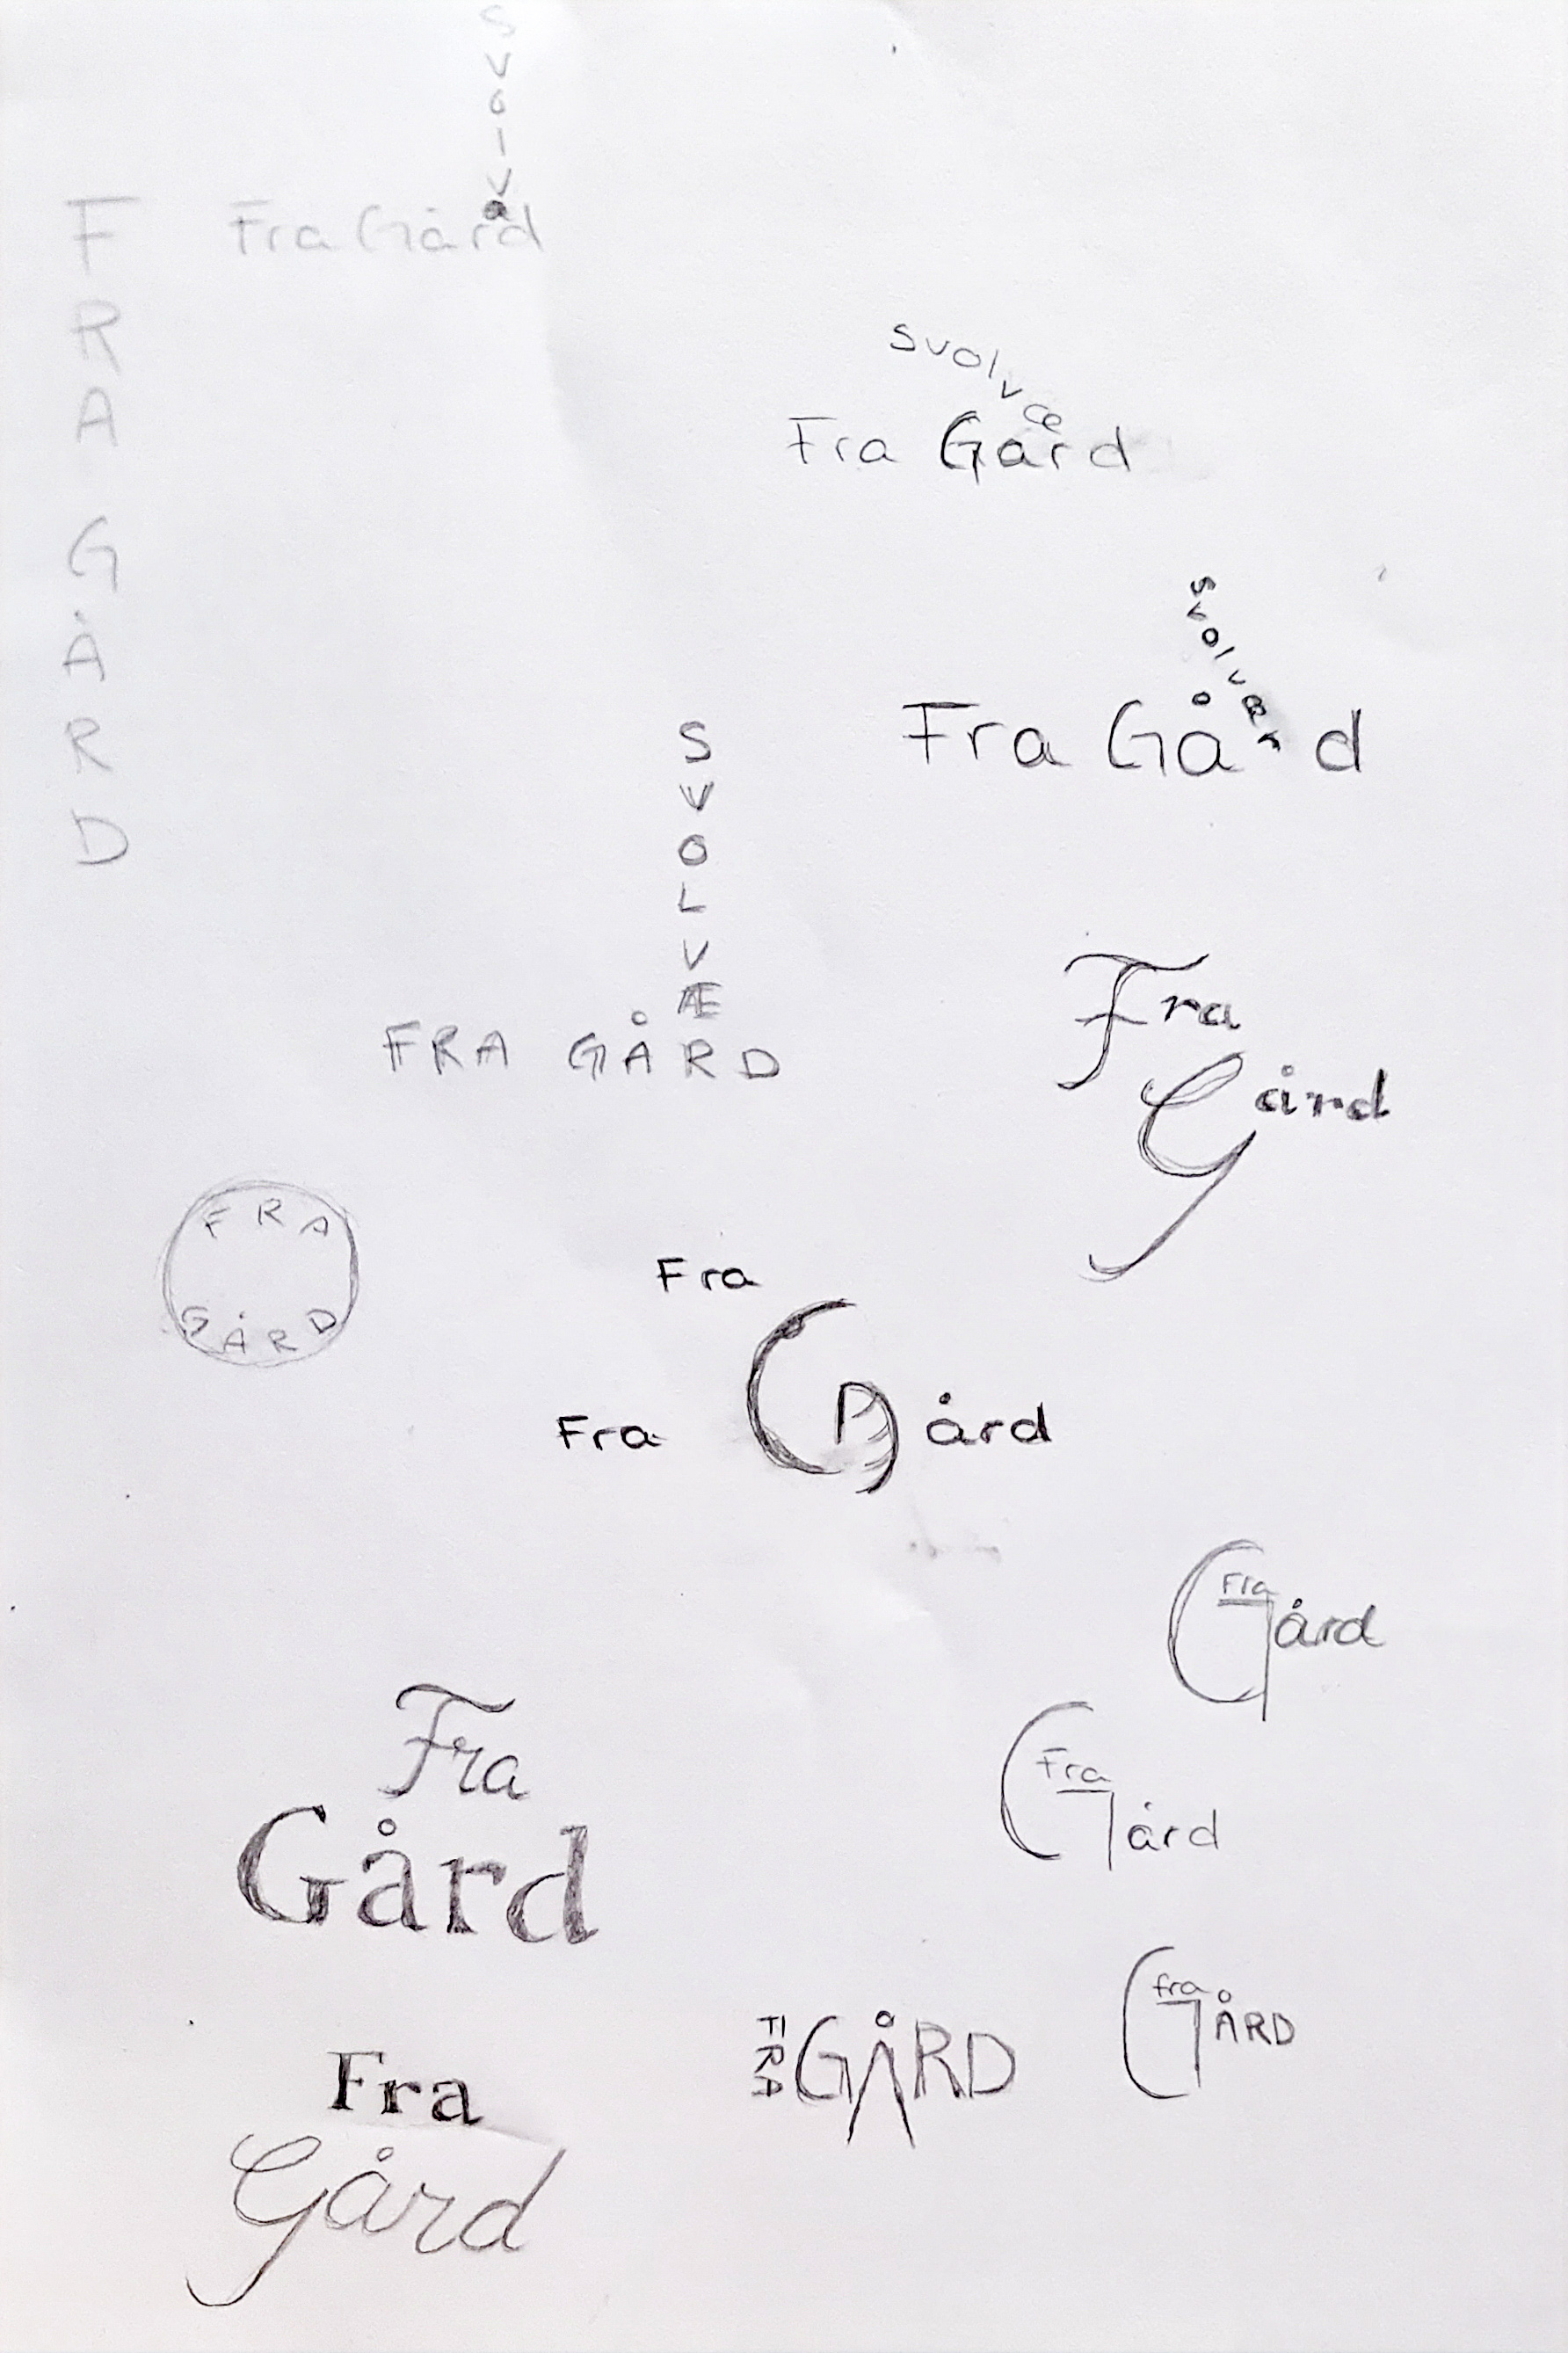 SVOLVæ
FRA GÅRD
Fra Gård
Svolvæ
Fra Gård
SVOLVÆR
Fra Gård
SVOLVÆ
FRA GÅRD
Fra
Gård
FRA
GÅRD
Fra
Fra Gård
Fra
Gård
Fra
Gård
Fra
Gård
fra
GÅRD
FRA GÅRD
Fra
Gård